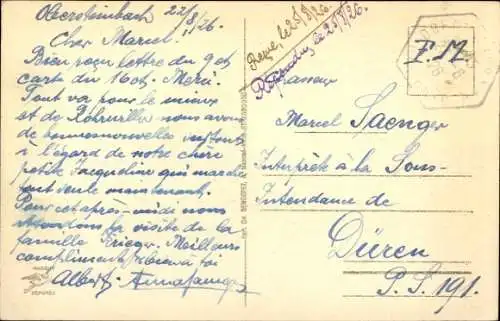 Obersteinbach 22/8/26.
Cher Marcel!
Bien reçu lettre du 9 et
carte du 16 ct. Merci.
Tout va pour le mieux
et de Rohrwiller nous avons
de bonnes nouvelles surtout
à l'égard de notre chère
petite Jacqueline qui marche
toute seule maintenant.
Pour cet après-midi nous
attendons la visite de la
famille Meilleurs
compliments à toi
Albert. Anna
Reçue, le 25/8/26
Répondu, le 25/8/26.
F.M.
Monsieur
Marcel Saenger
Interprète à la Sous-
Intendance de
Düren
P.S. 191.